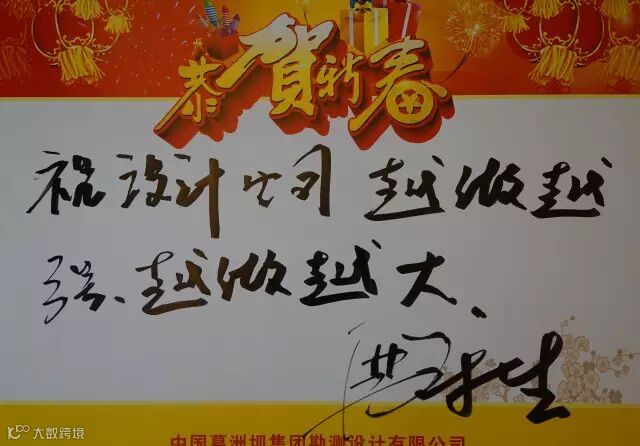 恭贺新春
祝设计公司越做越
强、越做越大、
中国葛洲坝集团勘测设计有限公司
大数跨境